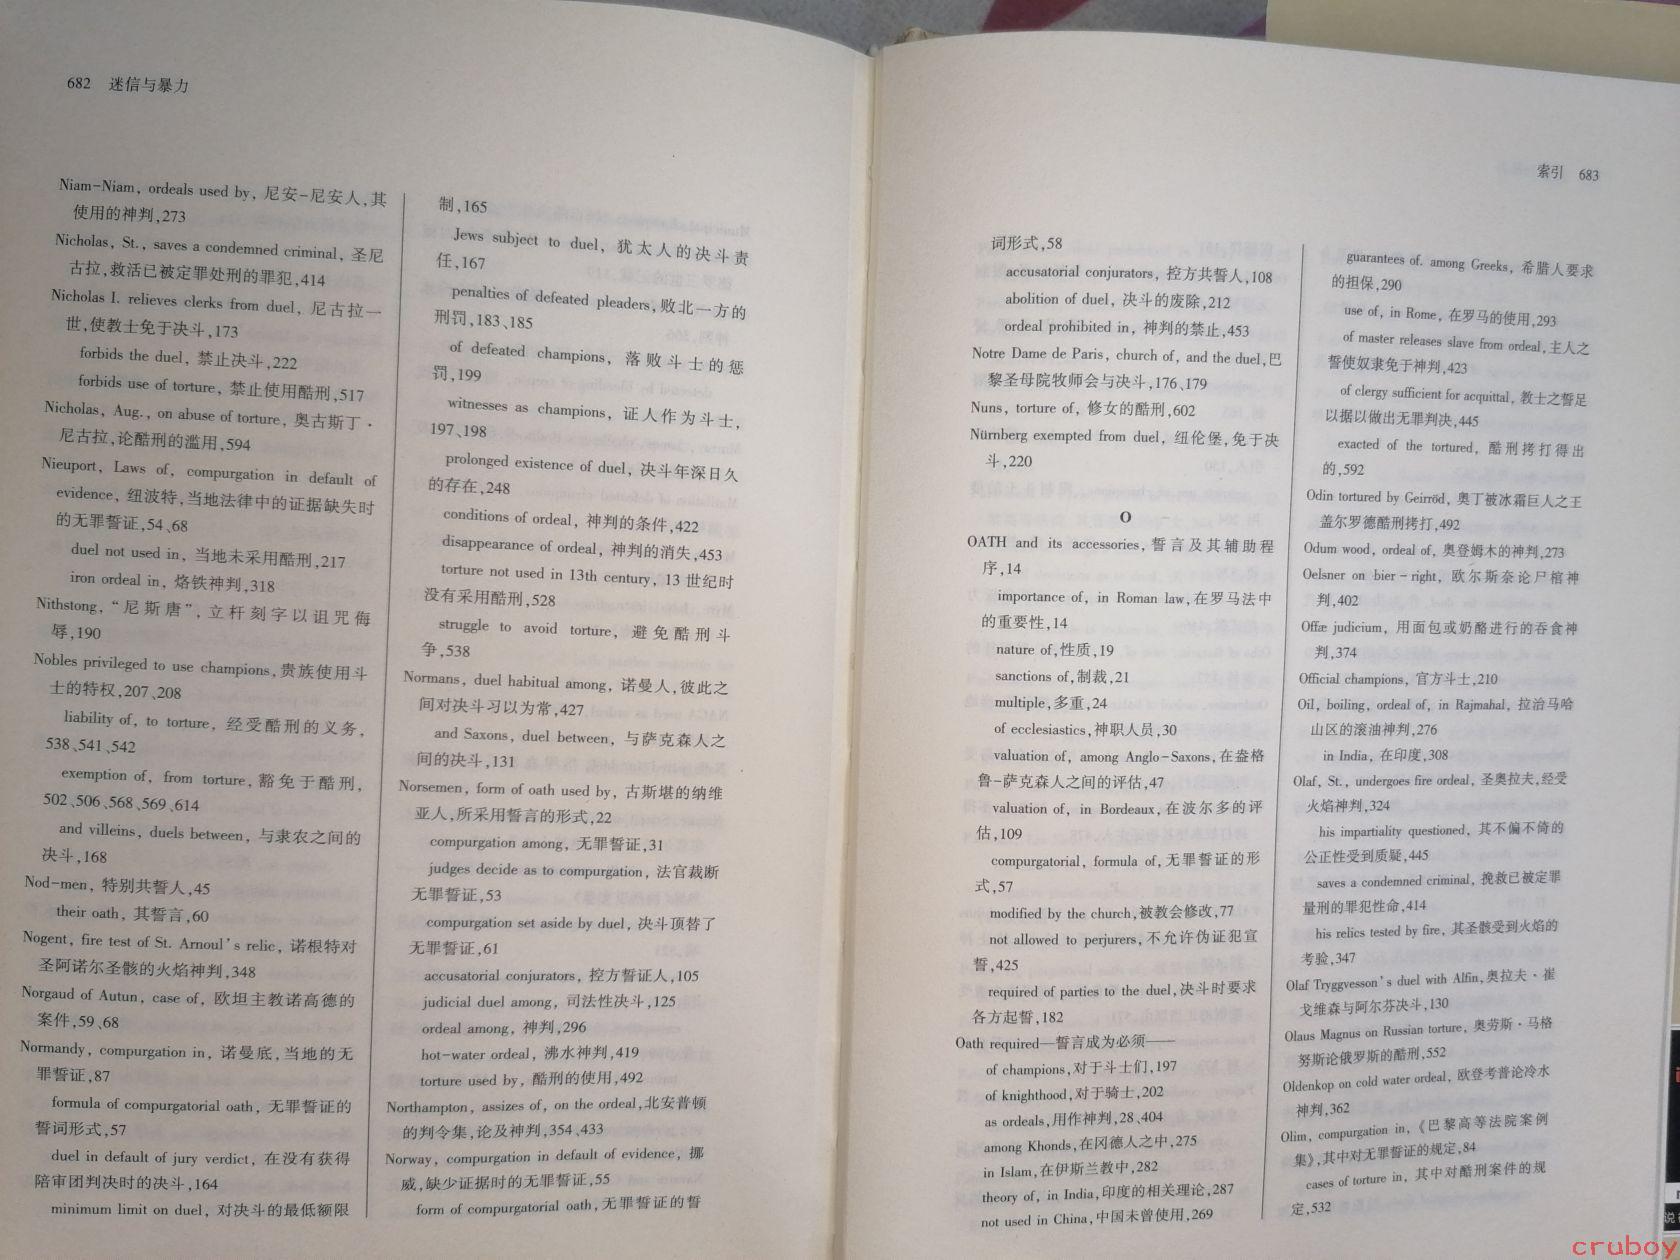 682 迷信与暴力
Niam-Niam, ordeals used by, 尼安-尼安人,其
使用的神判,273
Nicholas, St., saves a condemned criminal, 圣尼
古拉,救活已被定罪处刑的罪犯,414
Nicholas I. relieves clerks from duel, 尼古拉一
世,使教士免于决斗,173
forbids the duel, 禁止决斗,222
forbids use of torture, 禁止使用酷刑,517
Nicholas, Aug., on abuse of torture, 奥古斯丁·
尼古拉,论酷刑的滥用,594
Nieuport, Laws of, compurgation in default of
evidence, 纽波特,当地法律中的证据缺失时
的无罪誓证,54、68
duel not used in, 当地未采用酷刑,217
iron ordeal in, 烙铁神判,318
Nithstong, “尼斯唐”, 立杆刻字以诅咒侮
辱,190
Nobles privileged to use champions,贵族使用斗
士的特权,207、208
liability of, to torture, 经受酷刑的义务,
538、541、542
exemption of, from torture, 豁免于酷刑,
502、506、568、569、614
and villeins, duels between, 与隶农之间的
决斗,168
Nod-men, 特别共誓人,45
their oath, 其誓言,60
Nogent, fire test of St. Arnoul's relic, 诺根特对
圣阿诺尔圣骸的火焰神判,348
Norgaud of Autun, case of, 欧坦主教诺高德的
案件,59、68
Normandy, compurgation in, 诺曼底,当地的无
罪誓证,87
formula of compurgatorial oath, 无罪誓证的
誓词形式,57
duel in default of jury verdict, 在没有获得
陪审团判决时的决斗,164
minimum limit on duel, 对决斗的最低额限
制,165
Jews subject to duel, 犹太人的决斗责
任,167
penalties of defeated pleaders,败北一方的
刑罚,183、185
of defeated champions, 落败斗士的惩
罚,199
witnesses as champions, 证人作为斗士,
197、198
prolonged existence of duel, 决斗年深日久
的存在,248
conditions of ordeal, 神判的条件,422
disappearance of ordeal, 神判的消失,453
torture not used in 13th century, 13 世纪时
没有采用酷刑,528
struggle to avoid torture, 避免酷刑斗
争,538
Normans, duel habitual among, 诺曼人,彼此之
间对决斗习以为常,427
and Saxons, duel between, 与萨克森人之
间的决斗,131
Norsemen, form of oath used by, 古斯堪的纳维
亚人,所采用誓言的形式,22
compurgation among, 无罪誓证,31
judges decide as to compurgation, 法官裁断
无罪誓证,53
compurgation set aside by duel, 决斗顶替了
无罪誓证,61
accusatorial conjurators, 控方誓证人,105
judicial duel among, 司法性决斗,125
ordeal among, 神判,296
hot-water ordeal, 沸水神判,419
torture used by, 酷刑的使用,492
Northampton, assizes of, on the ordeal,北安普顿
的判令集,论及神判,354、433
Norway, compurgation in default of evidence, 挪
威,缺少证据时的无罪誓证,55
form of compurgatorial oath,无罪誓证的誓
索引 683
词形式,58
accusatorial conjurators, 控方共誓人,108
abolition of duel, 决斗的废除,212
ordeal prohibited in, 神判的禁止,453
Notre Dame de Paris, church of, and the duel,巴
黎圣母院牧师会与决斗,176、179
Nuns, torture of, 修女的酷刑,602
Nürnberg exempted from duel, 纽伦堡,免于决
斗,220
O
OATH and its accessories, 誓言及其辅助程
序,14
importance of, in Roman law,在罗马法中
的重要性,14
nature of,性质,19
sanctions of,制裁,21
multiple,多重,24
of ecclesiastics,神职人员,30
valuation of, among Anglo-Saxons,在盎格
鲁-萨克森人之间的评估,47
valuation of, in Bordeaux,在波尔多的评
估,109
compurgatorial, formula of,无罪誓证的形
式,57
modified by the church,被教会修改,77
not allowed to perjurers,不允许伪证犯宣
誓,425
required of parties to the duel,决斗时要求
各方起誓,182
Oath required—誓言成为必须——
of champions,对于斗士们,197
of knighthood,对于骑士,202
as ordeals,用作神判,28、404
among Khonds,在冈德人之中,275
in Islam,在伊斯兰教中,282
theory of, in India,印度的相关理论,287
not used in China,中国未曾使用,269
guarantees of. among Greeks, 希腊人要求
的担保,290
use of, in Rome, 在罗马的使用,293
of master releases slave from ordeal,主人之
誓使奴隶免于神判,423
of clergy sufficient for acquittal, 教士之誓足
以据以做出无罪判决,445
exacted of the tortured, 酷刑拷打得出
的,592
Odin tortured by Geirröd, 奥丁被冰霜巨人之王
盖尔罗德酷刑拷打,492
Odum wood, ordeal of, 奥登姆木的神判,273
Oelsner on bier-right, 欧尔斯奈论尸棺神
判,402
Offæ judicium, 用面包或奶酪进行的吞食神
判,374
Official champions, 官方斗士,210
Oil, boiling, ordeal of, in Rajmahal, 拉治马哈
山区的滚油神判,276
in India, 在印度,308
Olaf, St., undergoes fire ordeal, 圣奥拉夫,经受
火焰神判,324
his impartiality questioned, 其不偏不倚的
公正性受到质疑,445
saves a condemned criminal, 挽救已被定罪
量刑的罪犯性命,414
his relics tested by fire, 其圣骸受到火焰的
考验,347
Olaf Tryggvesson's duel with Alfin,奥拉夫·崔
戈维森与阿尔芬决斗,130
Olaus Magnus on Russian torture, 奥劳斯·马格
努斯论俄罗斯的酷刑,552
Oldenkop on cold water ordeal, 欧登考普论冷水
神判,362
Olim, compurgation in, 《巴黎高等法院案例
集》,其中对无罪誓证的规定,84
cases of torture in, 其中对酷刑案件的规
定,532
cruboy